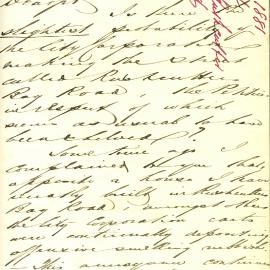 Is there the
slightest probability of
the City Corporation
making the street
called Rushcutters
Bay Road, the
in respect of which
seem as usual to have
been shelved?
Some time ago I
complained to you that
opposite a house I have
built in Rushcutters
Bay Road amongst others
the City Corporation carts
were continually depositing
offensive smelling rubbish
This annoyance continues
1881